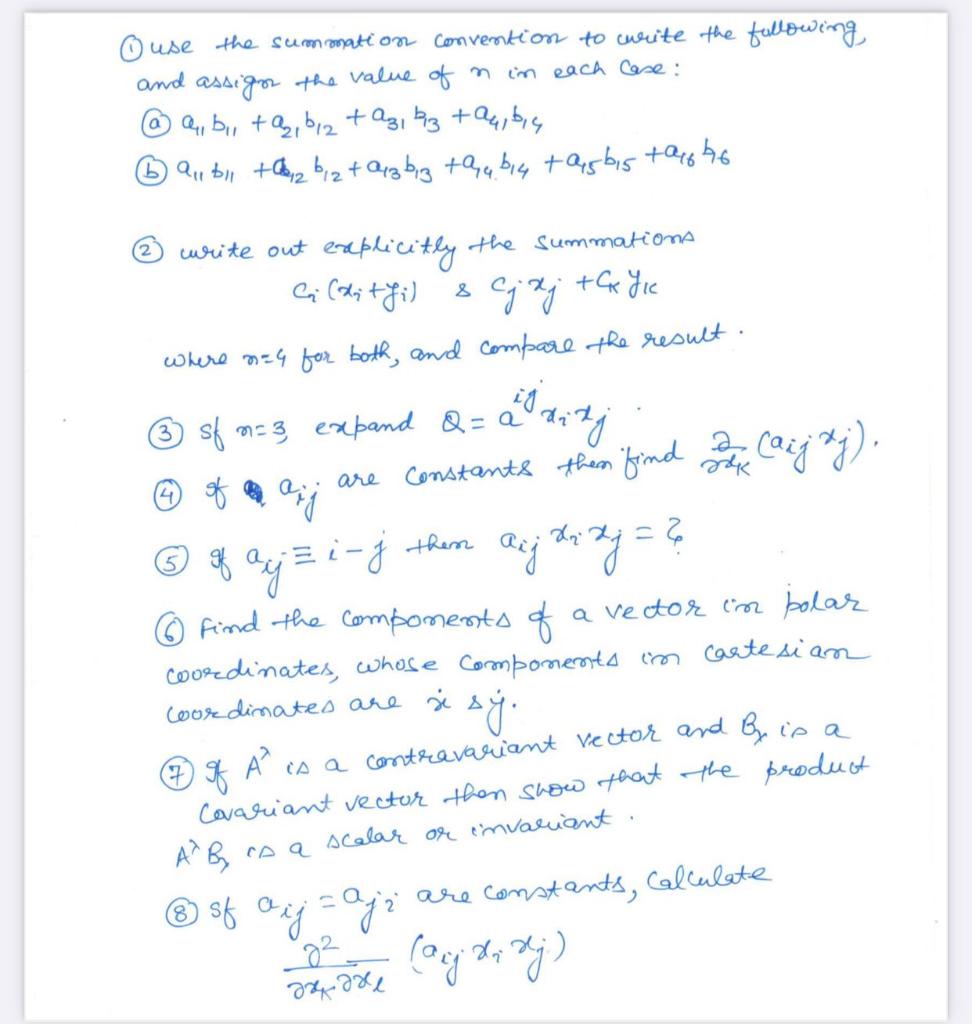 ① use the summation convention to write the following,
and assign the value of n in each case:
ⓐ a₁₁ b₁₁ + a₂₁ b₁₂ + a₃₁ b₁₃ + a₄₁ b₁₄
ⓑ a₁₁ b₁₁ + a₁₂ b₁₂ + a₁₃ b₁₃ + a₁₄ b₁₄ + a₁₅ b₁₅ + a₁₆ b₁₆
② write out explicitly the summations
cᵢ (xᵢ + yᵢ) & cⱼ xⱼ + cₖ yₖ
where n=4 for both, and compare the result.
③ If n=3, expand Q = aⁱʲ xᵢ xⱼ.
④ If aᵢⱼ are constants then find ∂/∂xₖ (aᵢⱼ xⱼ).
⑤ If aᵢⱼ ≡ i-j then aᵢⱼ xᵢ xⱼ = ?
⑥ Find the components of a vector in polar
coordinates, whose components in cartesian
coordinates are ẋ & ẏ.
⑦ If A^λ is a contravariant vector and B_λ is a
covariant vector then show that the product
A^λ B_λ is a scalar or invariant.
⑧ If aᵢⱼ = aⱼᵢ are constants, calculate
∂²/∂xₖ∂xₗ (aᵢⱼ xᵢ xⱼ)